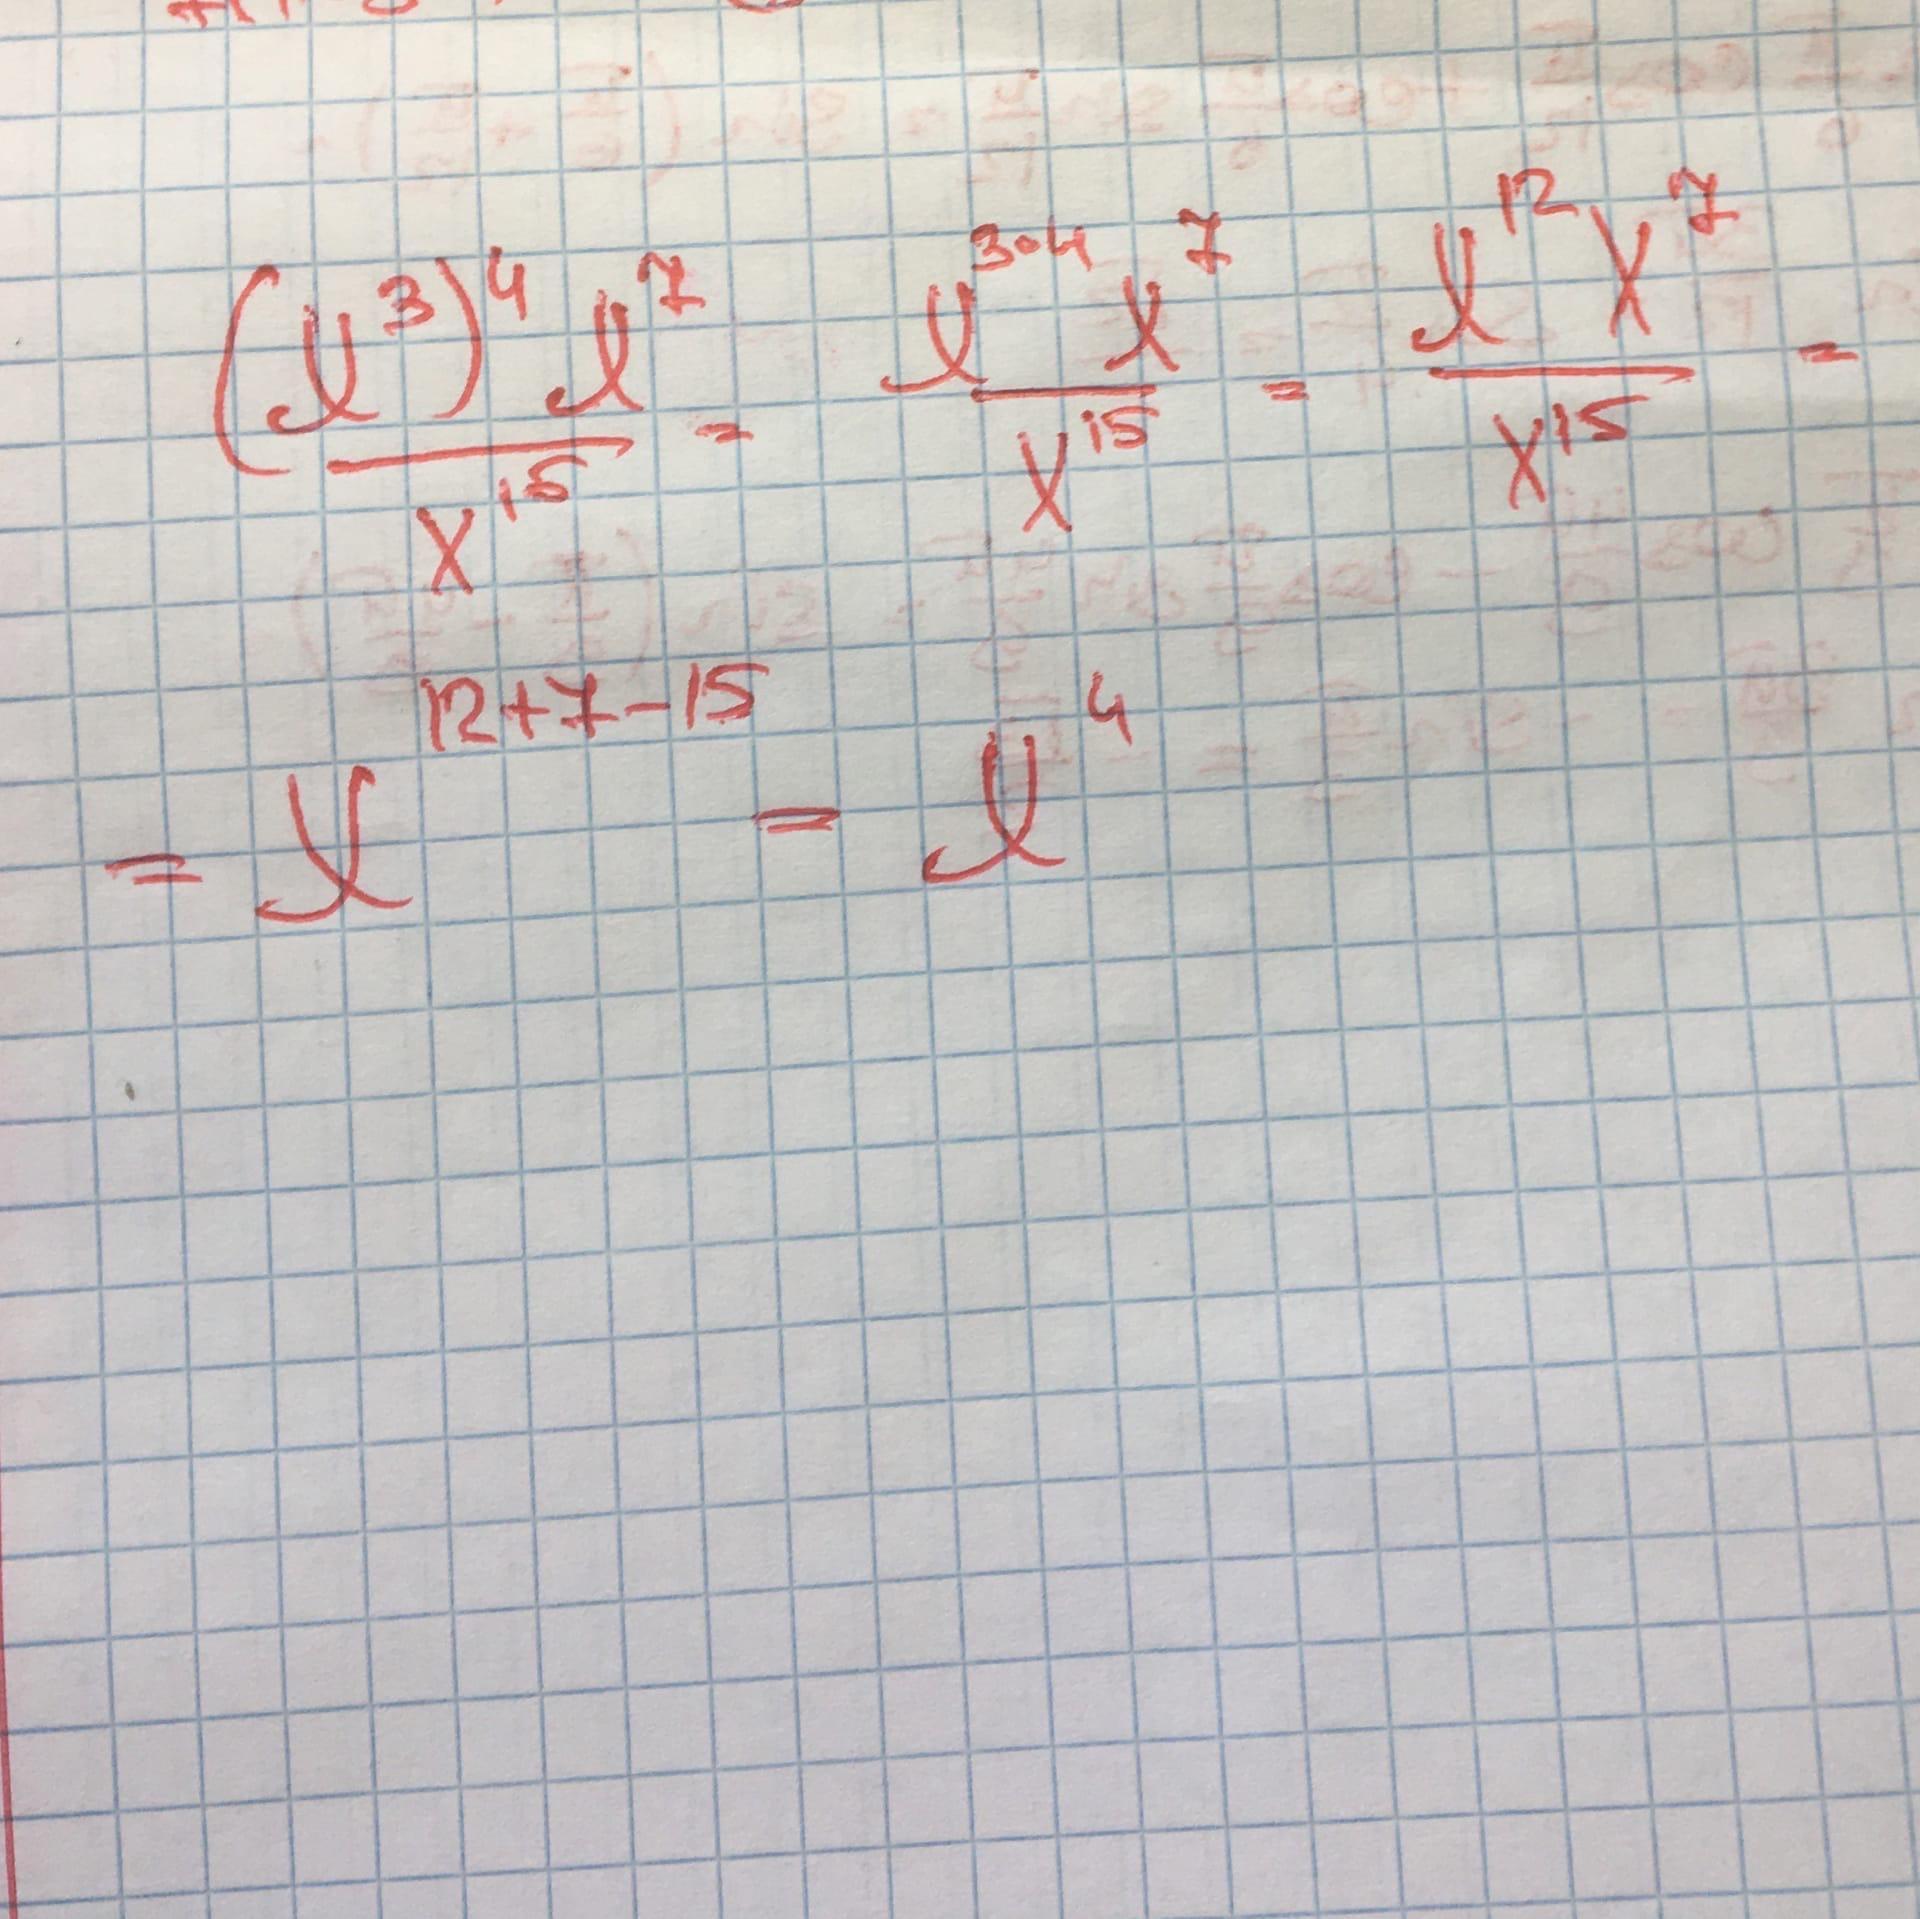 (x³)⁴ x⁷ / x¹⁵ = x³·⁴ x⁷ / x¹⁵ = x¹² x⁷ / x¹⁵ =
= x¹²⁺⁷⁻¹⁵ = x⁴